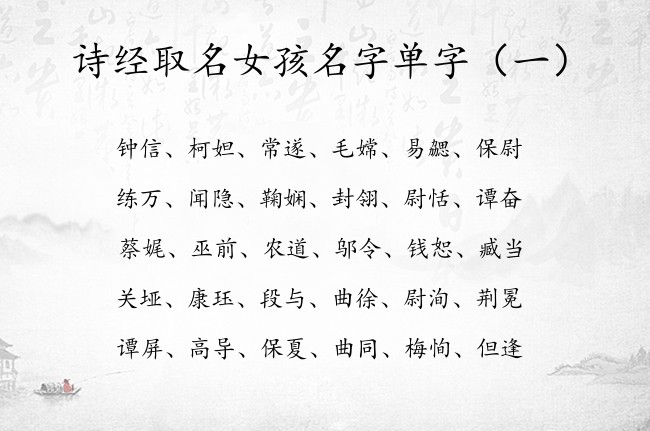 诗经取名女孩名字单字（一）
钟信、柯妲、常遂、毛嫦、易勰、保尉
练万、闻隐、鞠娴、封翎、尉恬、谭奋
蔡娓、巫前、农道、邬令、钱恕、臧当
关垭、康珏、段与、曲徐、尉洵、荆冕
谭屏、高导、保夏、曲同、梅恂、但逢